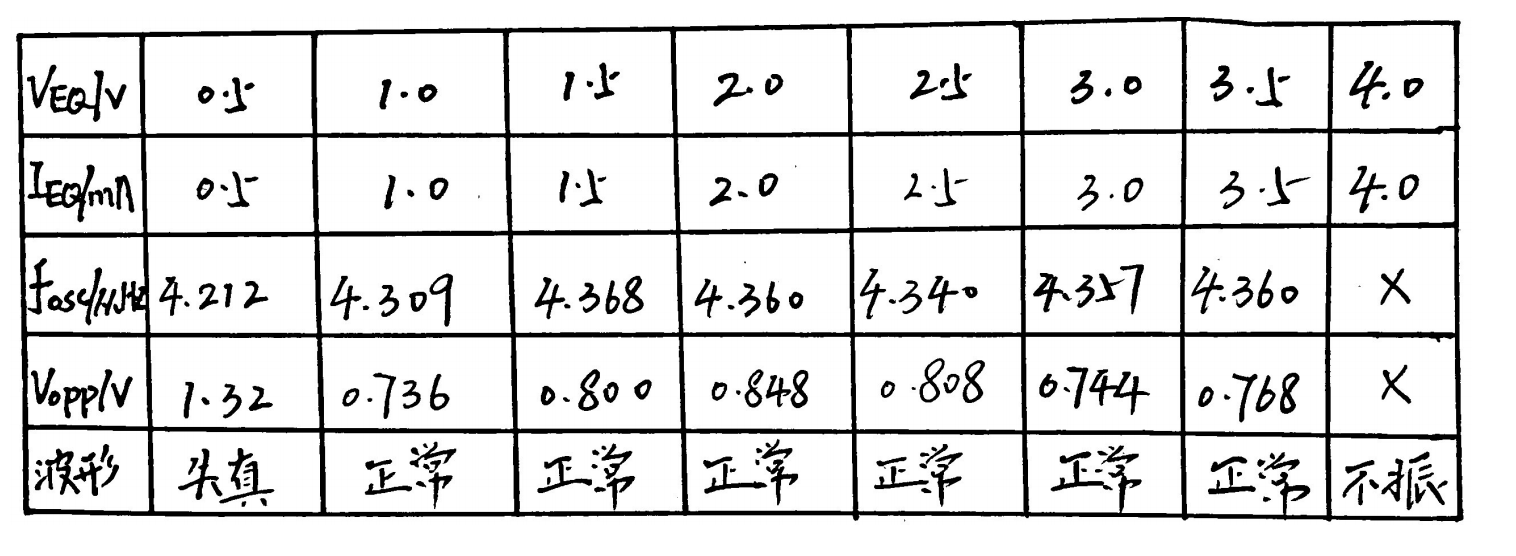 VEQ/V 0.5 1.0 1.5 2.0 2.5 3.0 3.5 4.0
IEQ/mA 0.5 1.0 1.5 2.0 2.5 3.0 3.5 4.0
fosc/MHz 4.212 4.309 4.368 4.360 4.340 4.357 4.360 X
Vopp/V 1.32 0.736 0.800 0.848 0.808 0.744 0.768 X
波形 失真 正常 正常 正常 正常 正常 正常 不振